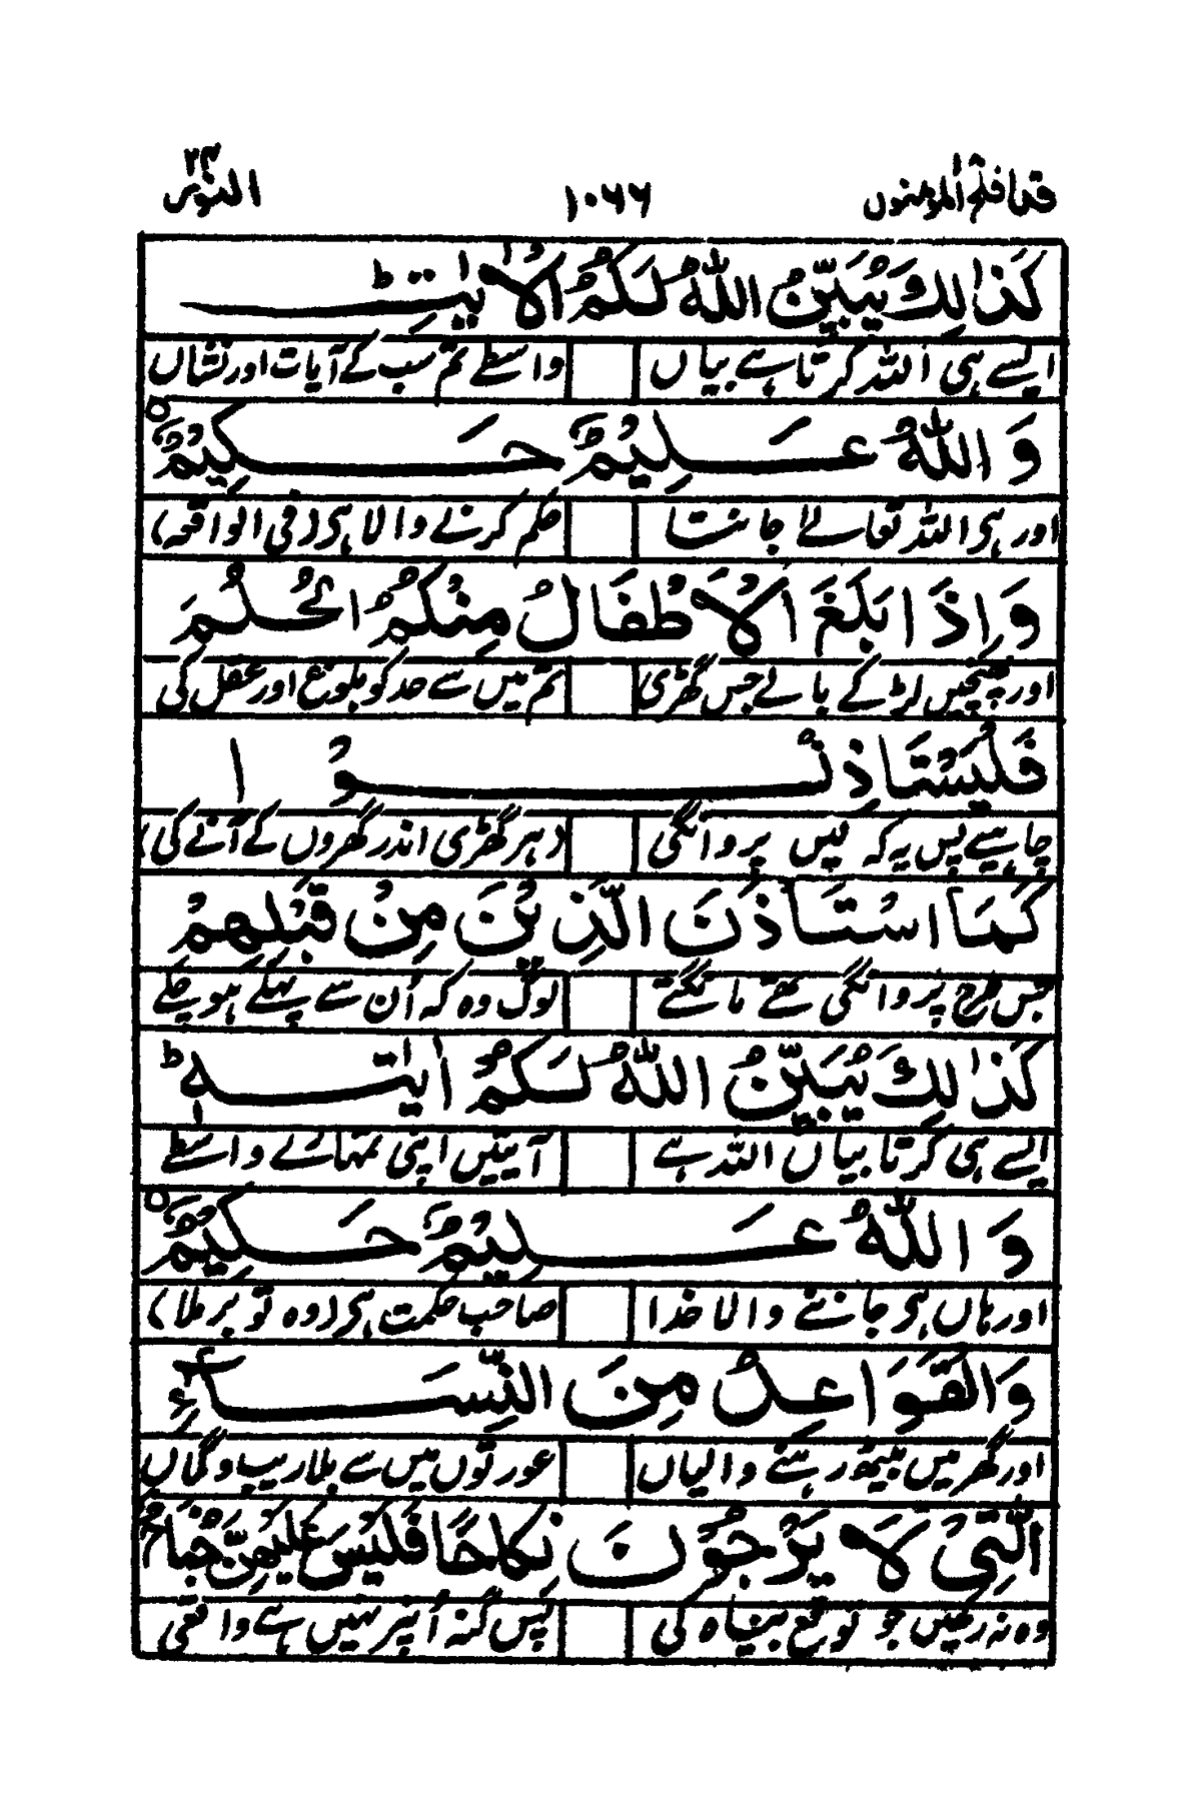 قد افلح المؤمنون ۱۰۶۶ النور ۲۴
كَذٰلِكَ يُبَيِّنُ اللّٰهُ لَكُمُ الْاٰيٰتِ ؕ
ایسے ہی اللہ کرتا ہے بیاں واسطے تم سب کے آیات اور نشاں
وَ اللّٰهُ عَلِيْمٌ حَكِيْمٌ ○
اور ہی اللہ تعالےٰ جانتا حکم کرنے والا ہی (فی الواقعہ)
وَ اِذَا بَلَغَ الْاَطْفَالُ مِنْكُمُ الْحُلُمَ
اور پہنچیں لڑکے بالے جس گھڑی تم میں سے حد کو بلوغ اور عقل کی
فَلْيَسْتَاْذِنُوْا
چاہیے پس یہ کہ لیں پروانگی (ہر گھڑی اندر گھروں کے آنے کی)
كَمَا اسْتَاْذَنَ الَّذِيْنَ مِنْ قَبْلِهِمْ
جس طرح پروانگی تھے مانگتے لوگ وہ کہ اُن سے پہلے ہو چکے
كَذٰلِكَ يُبَيِّنُ اللّٰهُ لَكُمْ اٰيٰتِهٖ ؕ
ایسے ہی کرتا بیاں اللہ ہے آیتیں اپنی تمہارے واسطے
وَ اللّٰهُ عَلِيْمٌ حَكِيْمٌ ○
اور ہاں ہی جاننے والا خدا صاحب حکمت ہی (وہ تو برملا)
وَالْقَوَاعِدُ مِنَ النِّسَآءِ
اور گھر میں بیٹھ رہنے والیاں عورتوں میں سے بلاریب و گماں
الّٰتِيْ لَا يَرْجُوْنَ نِكَاحًا فَلَيْسَ عَلَيْهِنَّ جُنَاحٌ
وہ نہ رکھیں جو توقع بیاہ کی پس گنہ اُنپر نہیں ہے واقعی